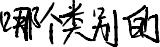 哪个类别的